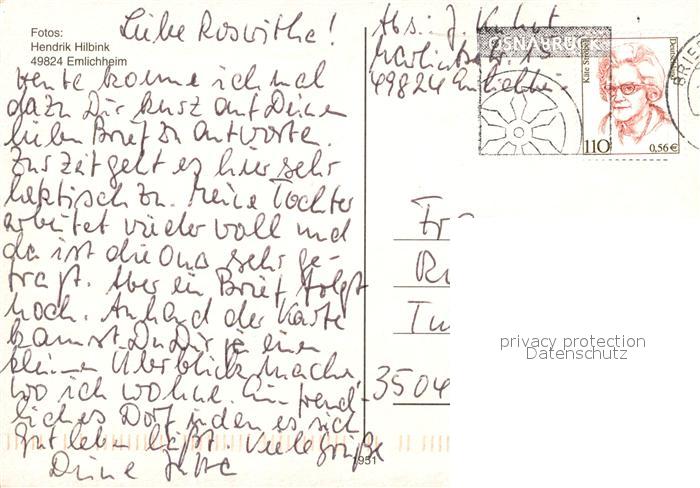 Fotos:
Hendrik Hilbink
49824 Emlichheim
Liebe Roswitha!
heute komme ich mal
dazu Dir kurz auf Deinen
lieben Brief zu antworten.
Zur Zeit geht es hier sehr
hektisch zu. Meine Tochter
arbeitet wieder voll und
da ist die Oma sehr ge-
fragt. Aber ein Brief folgt
noch. Anhand der Karte
kannst Du Dir ja einen
kleinen Überblick machen
wo ich wohne. Ein freund-
liches Dorf in dem es sich
gut leben läßt. Viele Grüße
Deine Jutta
Abs.: J.
49824 Emlichheim
OSNABRÜCK
Käte Strobel
Deutschland
110
0,56€
Fr
Ru
Tu
3504
1951
privacy protection
Datenschutz